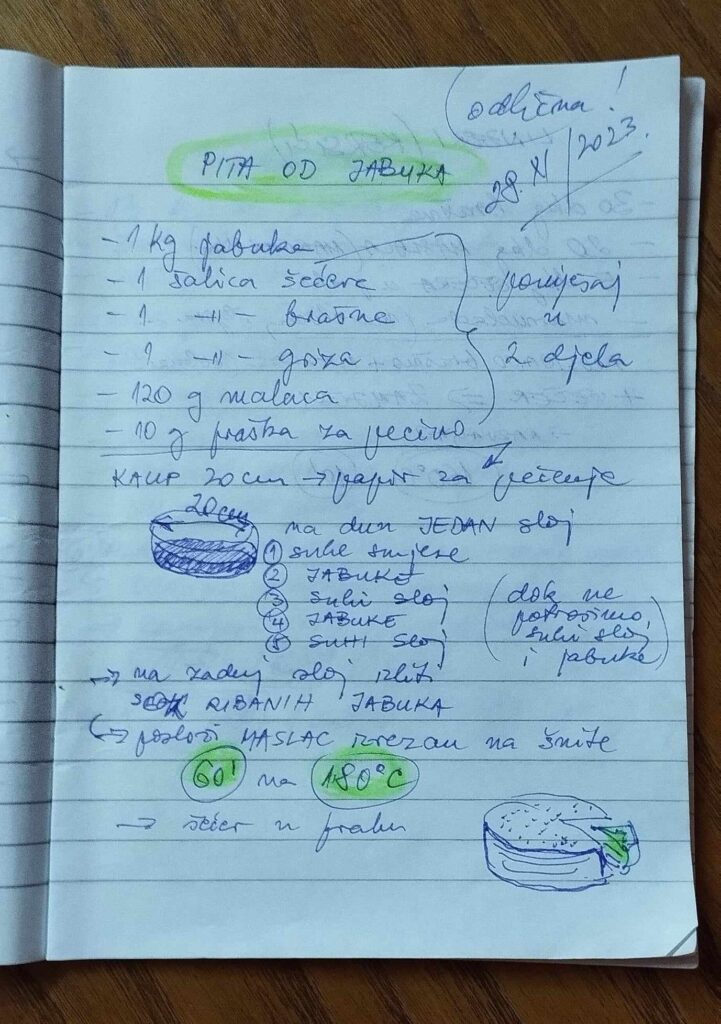 odlična!
PITA OD JABUKA
28. XI 2023.
- 1 kg jabuka
- 1 šalica šećera
- 1 -॥- brašna
- 1 -॥- griza
- 120 g maslaca
- 10 g praška za pecivo
pomiješaj
u
2 djela
KALUP 20 cm → papir za pečenje
20cm
na dun JEDAN sloj
① suhe smjese
② JABUKE
③ suhi sloj
④ JABUKE
⑤ SUHI sloj
(dok ne
potrošimo
suhi sloj
i jabuke)
→ na zadnji sloj izliti
sok RIBANIH JABUKA
→ posloži MASLAC izrezan na šnite
60' na 180°C
→ šećer u prahu